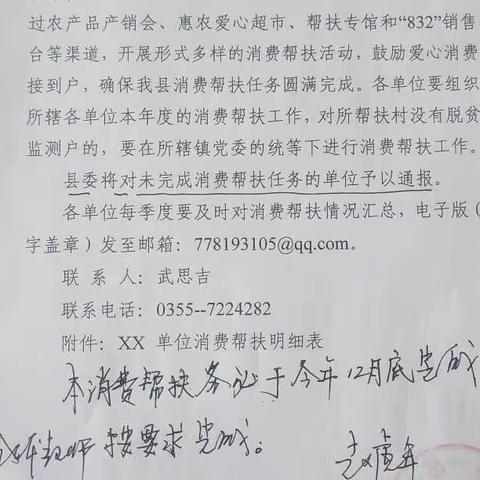 过农产品产销会、惠农爱心超市、帮扶专馆和“832”销售
台等渠道，开展形式多样的消费帮扶活动，鼓励爱心消费
接到户，确保我县消费帮扶任务圆满完成。各单位要组织
所辖各单位本年度的消费帮扶工作，对所帮扶村没有脱贫
监测户的，要在所辖镇党委的统筹下进行消费帮扶工作。
县委将对未完成消费帮扶任务的单位予以通报。
各单位每季度要及时对消费帮扶情况汇总，电子版（
字盖章）发至邮箱：778193105@qq.com。
联 系 人：武思吉
联系电话：0355--7224282
附件：XX 单位消费帮扶明细表
本消费帮扶务必于今年12月底完成
教师按要求完成。